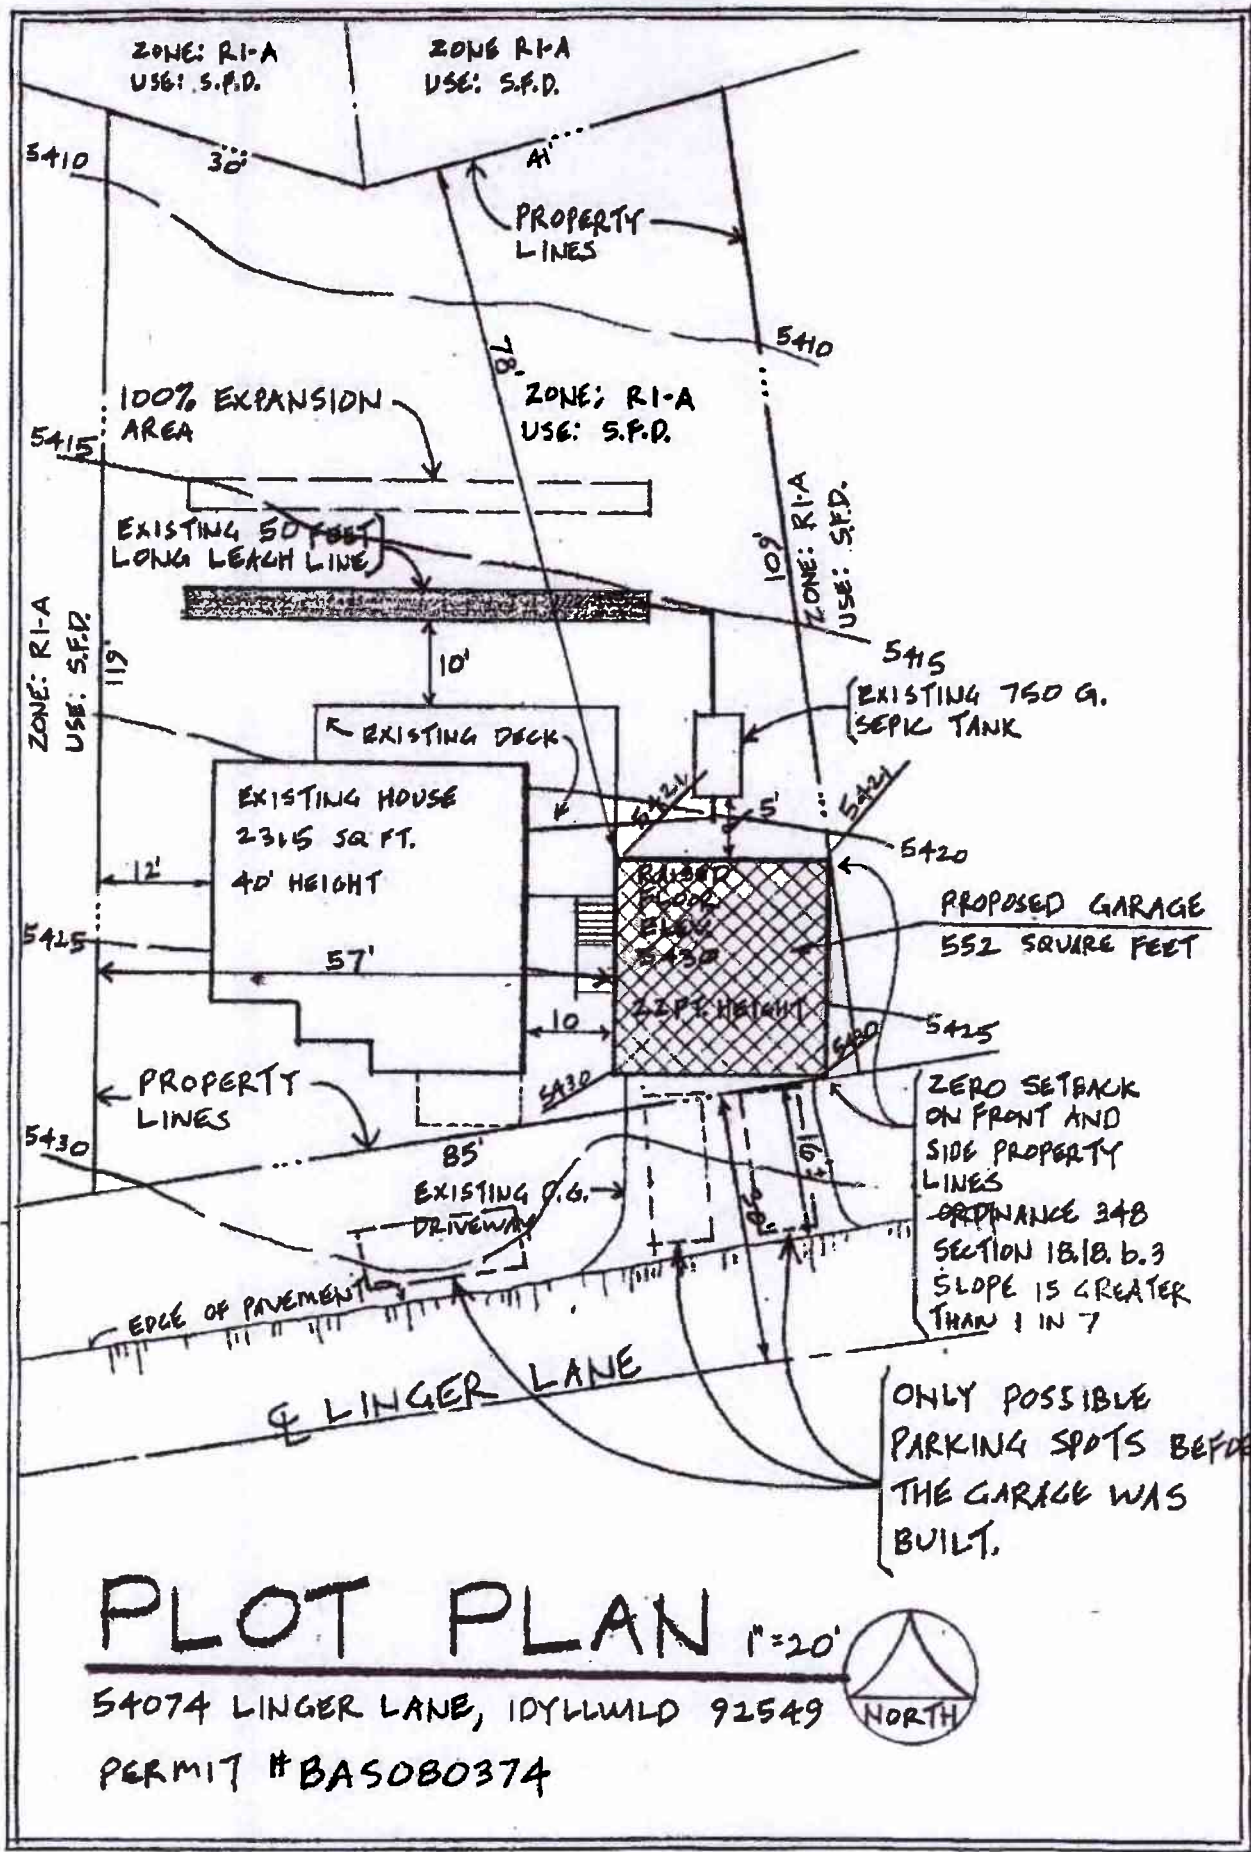 ZONE: R1-A
USE: S.F.D.
ZONE R1-A
USE: S.F.D.
5410
30'
41'
PROPERTY
LINES
5410
78'
100% EXPANSION
AREA
ZONE: R1-A
USE: S.F.D.
5415
EXISTING 50 FEET
LONG LEACH LINE
109'
ZONE: R1-A
USE: S.F.D.
ZONE: R1-A
USE: S.F.D.
119'
10'
5415
EXISTING 750 G.
SEPIC TANK
EXISTING DECK
5421
5421
5'
EXISTING HOUSE
2315 SQ FT.
40' HEIGHT
12'
5420
RAISED
FLOOR
ELEV.
5430
22 FT. HEIGHT
PROPOSED GARAGE
552 SQUARE FEET
5425
57'
10
5425
5430
5430
PROPERTY
LINES
5430
85'
ZERO SETBACK
ON FRONT AND
SIDE PROPERTY
LINES
ORDINANCE 348
SECTION 18.18.b.3
SLOPE IS GREATER
THAN 1 IN 7
EXISTING
DRIVEWAY
30'
EDGE OF PAVEMENT
℄ LINGER LANE
ONLY POSSIBLE
PARKING SPOTS BEFO
THE GARAGE WAS
BUILT.
PLOT PLAN 1"=20'
54074 LINGER LANE, IDYLLWILD 92549
NORTH
PERMIT #BAS080374